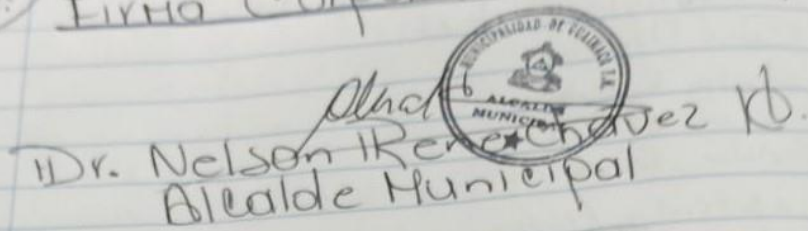 Firma
MUNICIPALIDAD DE GUAIMACA F.M.
ALCALDIA
MUNICIPAL
Dr. Nelson Rene Chavez
Alcalde Municipal